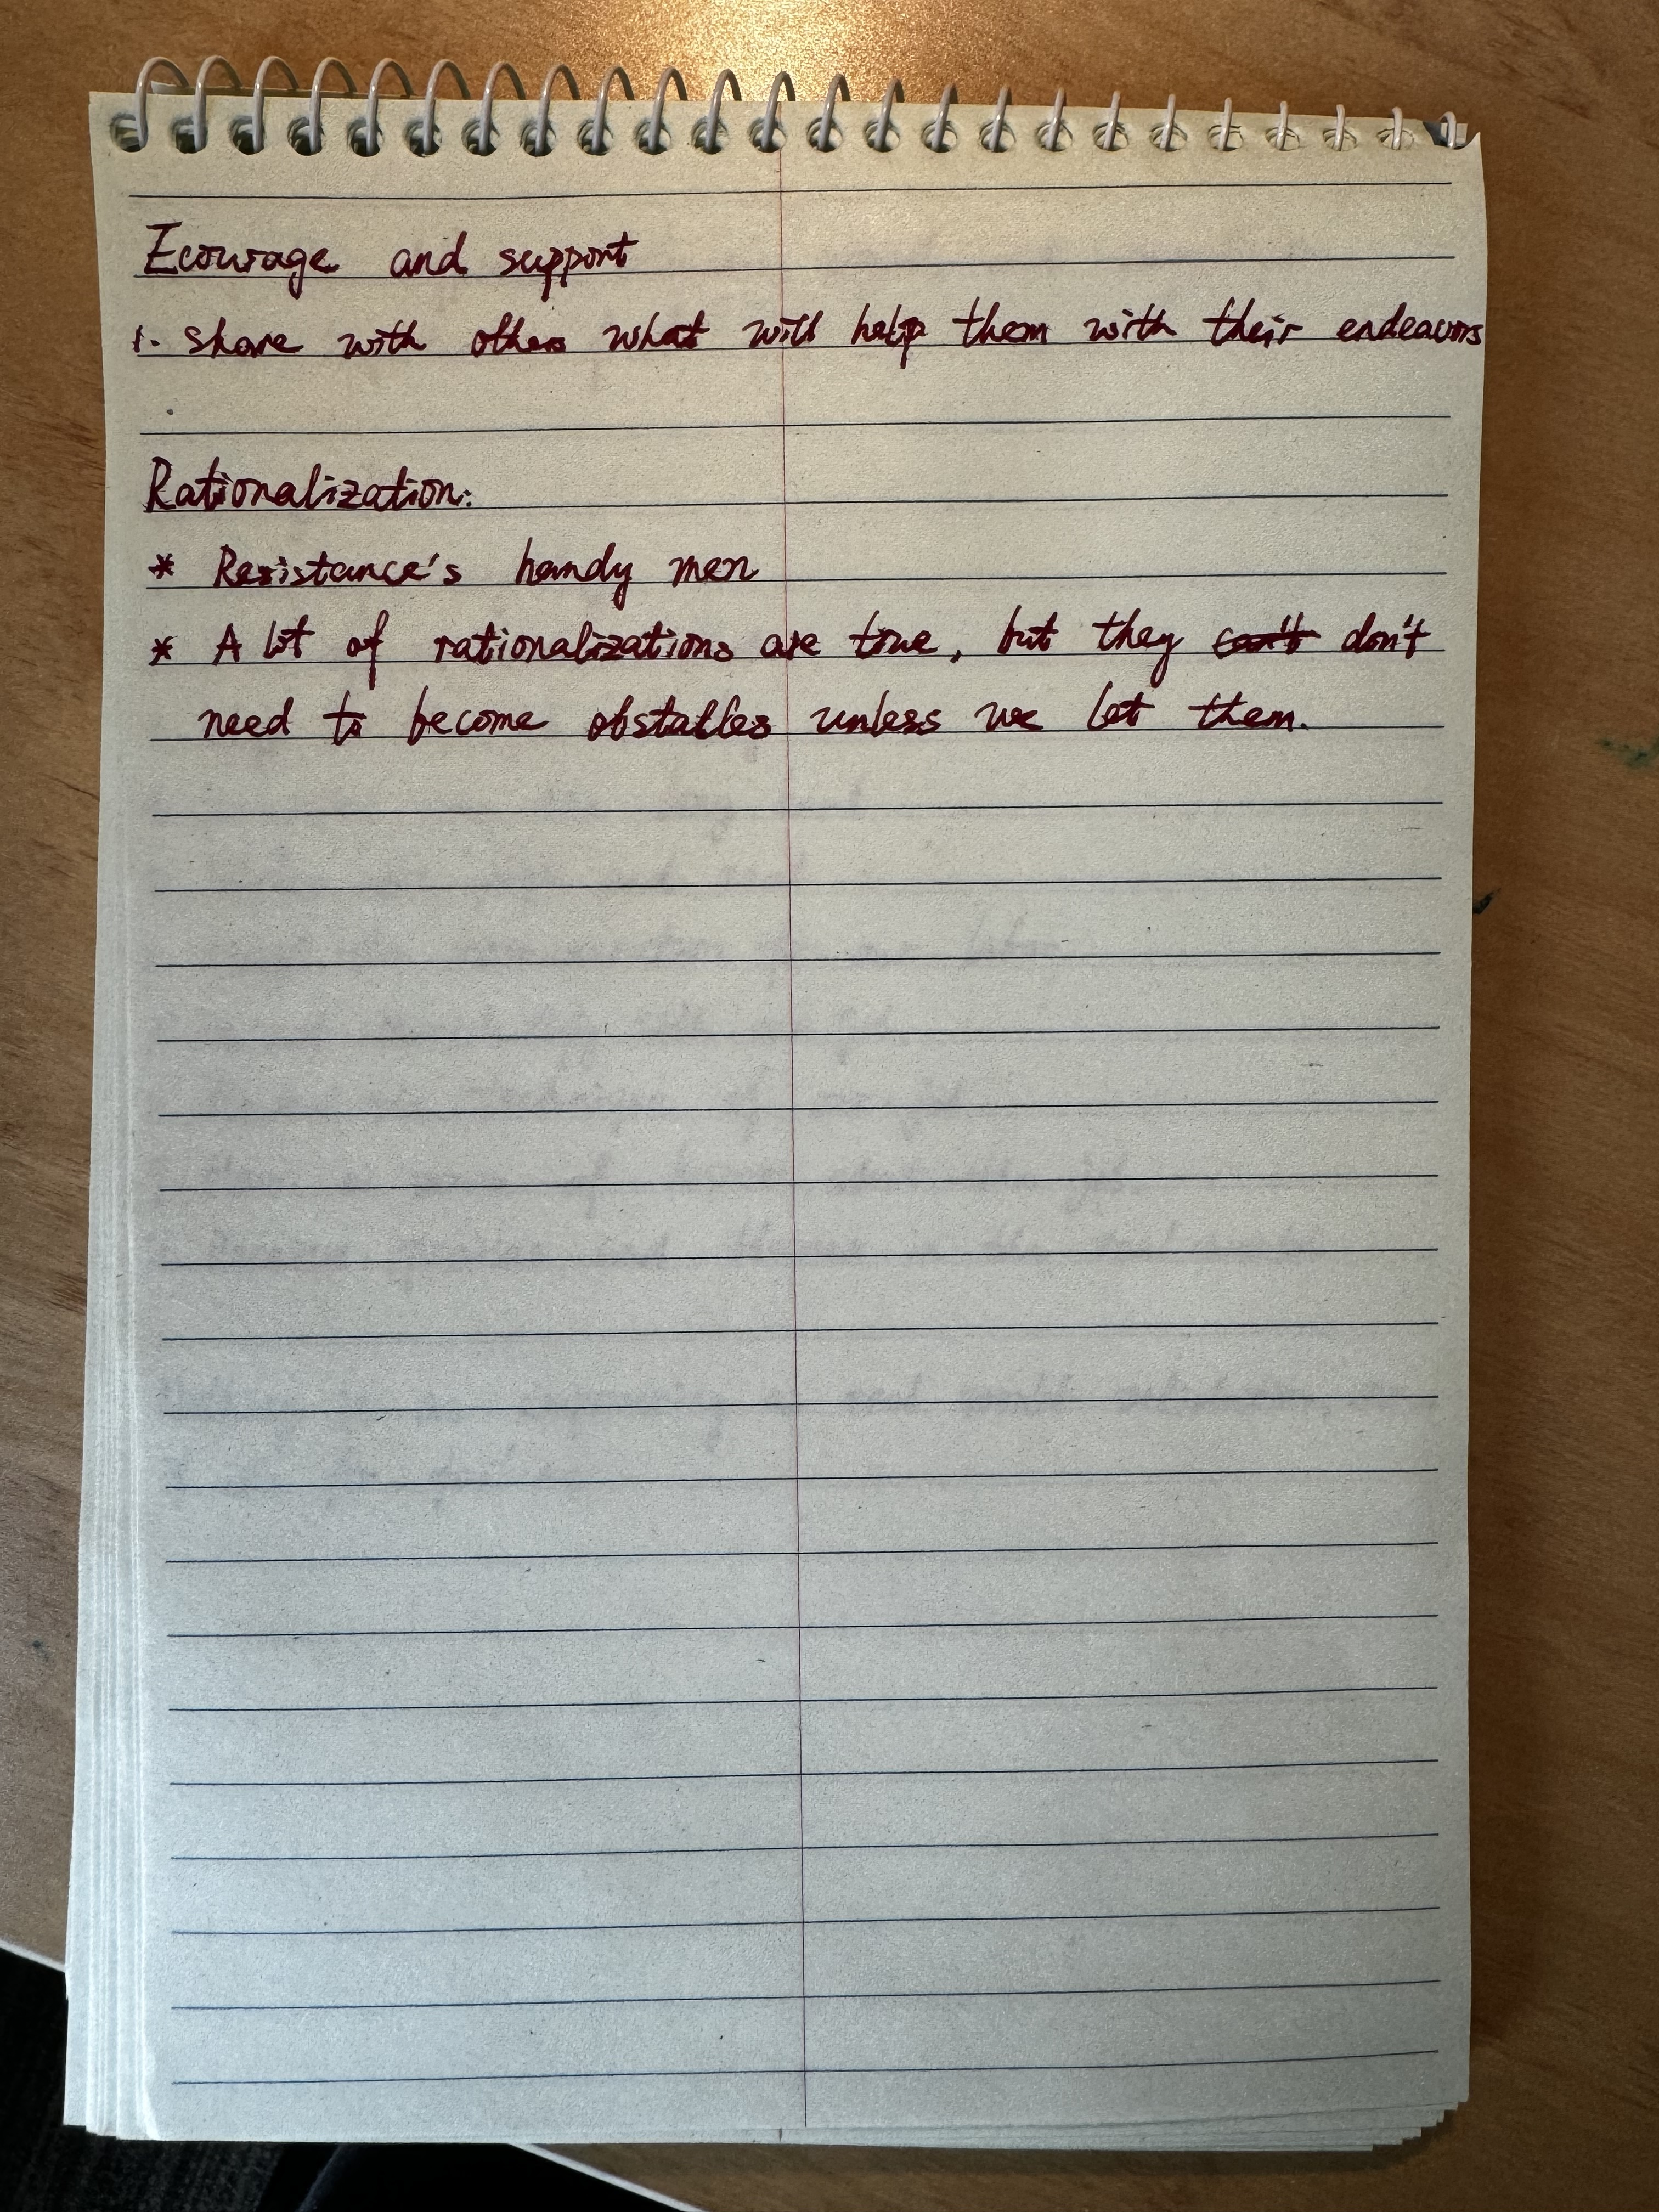 Ecourage and support
1. share with others what will help them with their endeavors
Rationalization:
* Resistance's handy men
* A lot of rationalizations are true, but they can't don't
need to become obstacles unless we let them.